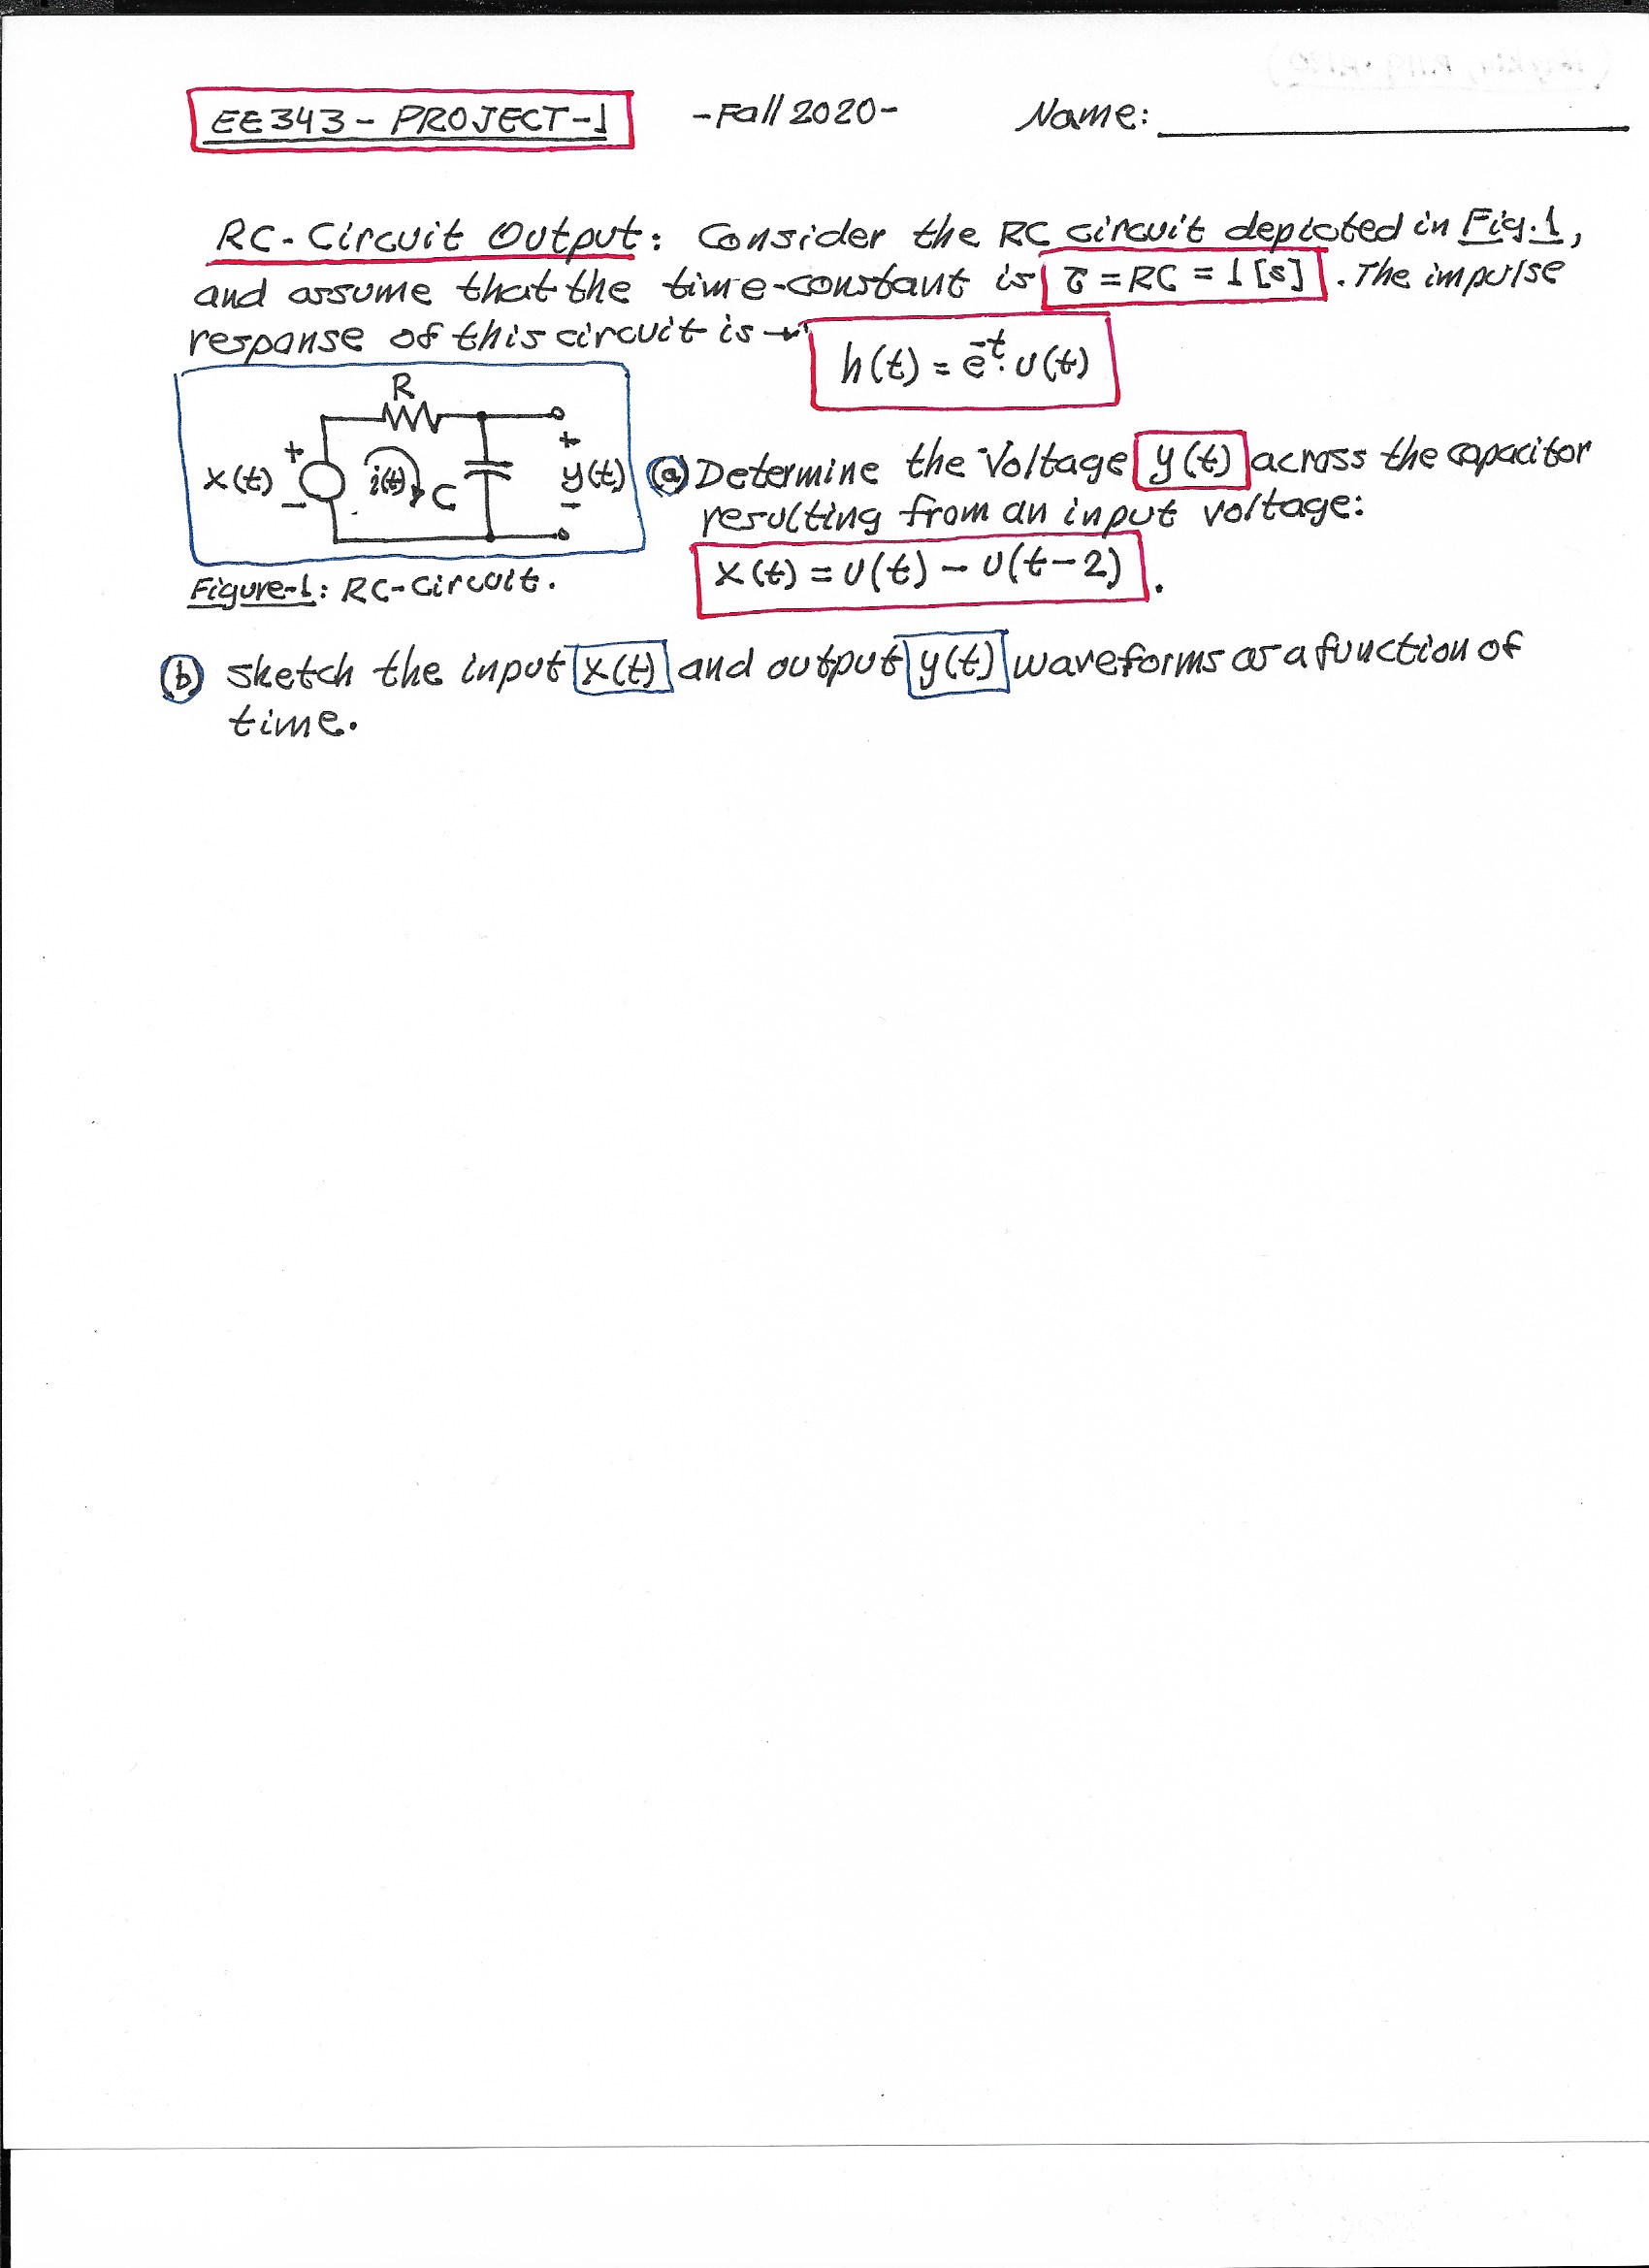 EE343 - PROJECT-1 -Fall 2020- Name:
RC-Circuit Output: Consider the RC circuit depicted in Fig.1,
and assume that the time-constant is τ = RC = 1 [s]. The impulse
response of this circuit is →
h(t) = e^-t. u(t)
R
x(t) + - i(t) C + y(t) -
Figure-1: RC-Circuit.
(a) Determine the Voltage y(t) across the capacitor
resulting from an input voltage:
x(t) = u(t) - u(t-2).
(b) Sketch the input x(t) and output y(t) waveforms as a function of
time.